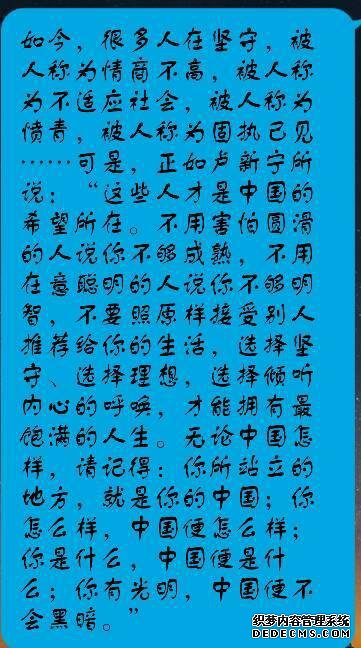 如今，很多人在坚守，被
人称为情商不高，被人称
为不适应社会，被人称为
愤青，被人称为固执己见
……可是，正如卢新宁所
说：“这些人才是中国的
希望所在。不用害怕圆滑
的人说你不够成熟，不用
在意聪明的人说你不够明
智，不要照原样接受别人
推荐给你的生活，选择坚
守、选择理想，选择倾听
内心的呼唤，才能拥有最
饱满的人生。无论中国怎
样，请记得：你所站立的
地方，就是你的中国；你
怎么样，中国便怎么样；
你是什么，中国便是什
么；你有光明，中国便不
会黑暗。”
织梦内容管理系统
DEDECMS.COM